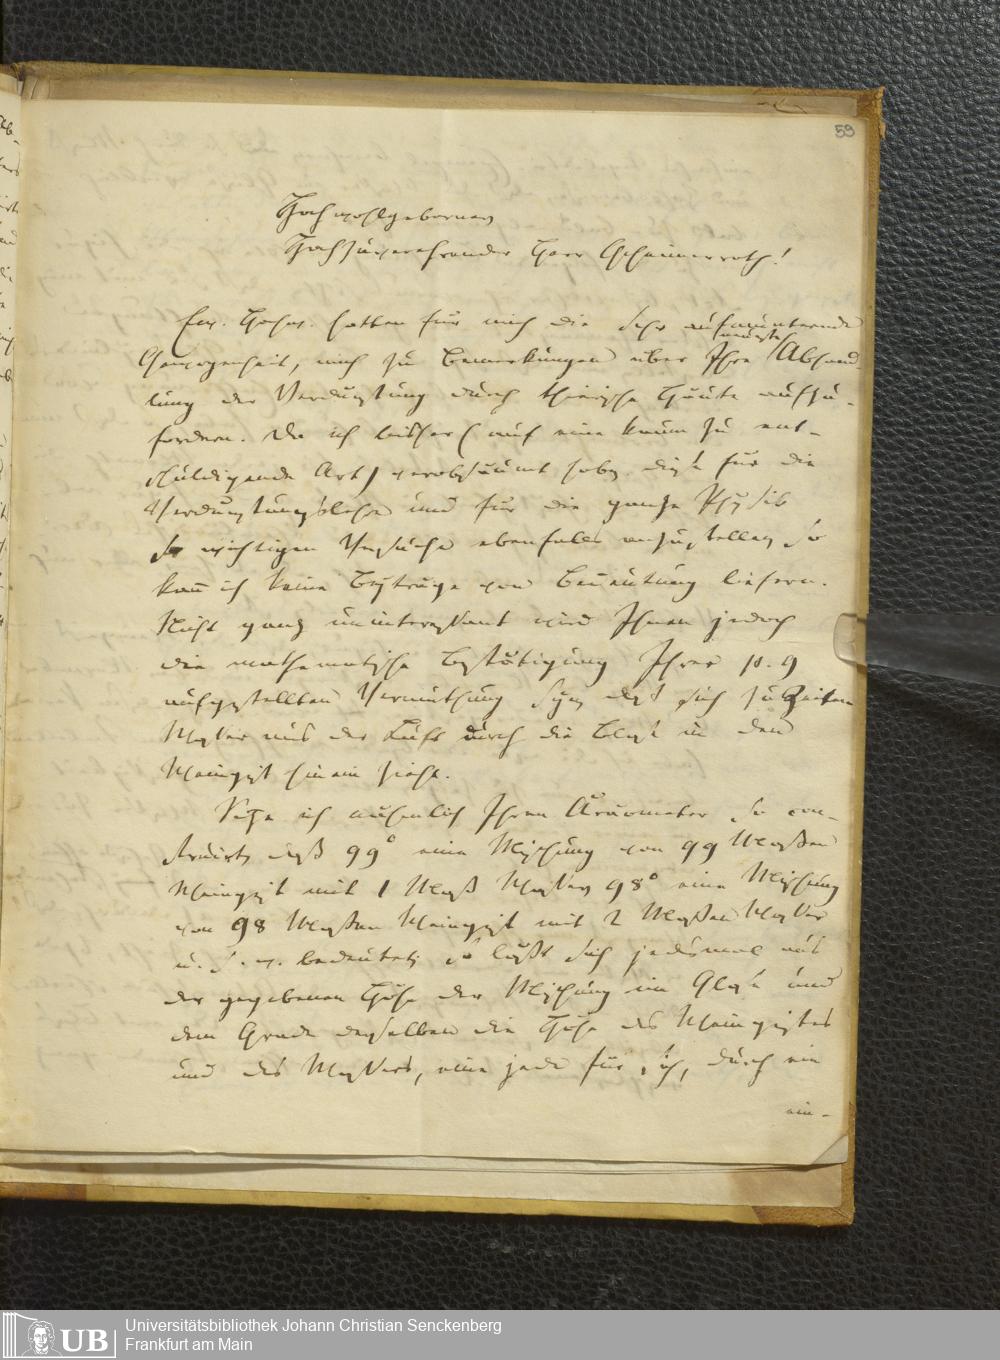 59
Hochwohlgeborner,
Hochzuverehrender Herr Geheimerrath!
Ew. Hochw. hatten für mich die sehr aufmunternde
neueste
Gewogenheit, mich zu Bemerkungen über Ihre Abhand-
lung der Verdunstung durch thierische Häute aufzu-
fordern. Da ich bisher (auf eine kaum zu ent-
schuldigende Art) verabsäumt habe, diese für die
Verdunstungslehre und für die ganze Physik
so wichtigen Versuche ebenfalls anzustellen, so
kann ich keine Beyträge von Bedeutung liefern.
Nicht ganz uninteressant wird Ihnen jedoch
die mathematische Bestätigung Ihrer p. 9
aufgestellten Vermuthung seyn, daß sich zu Zeiten
Wasser aus der Luft durch die Blase in den
Weingeist hinein ziehe.
Setze ich nehmlich Ihren Aräometer so con-
struirt, daß 99° eine Mischung von 99 Maßen
Weingeist mit 1 Maß Wasser, 98° eine Mischung
von 98 Maßen Weingeist mit 2 Maßen Wasser
u. s. w. bedeutet, so läßt sich jedesmal aus
der gegebenen Höhe der Mischung im Glase und
dem Grade derselben die Höhe des Weingeistes
und des Wassers, eine jede für sich, durch ein
ein-
UB
Universitätsbibliothek Johann Christian Senckenberg
Frankfurt am Main